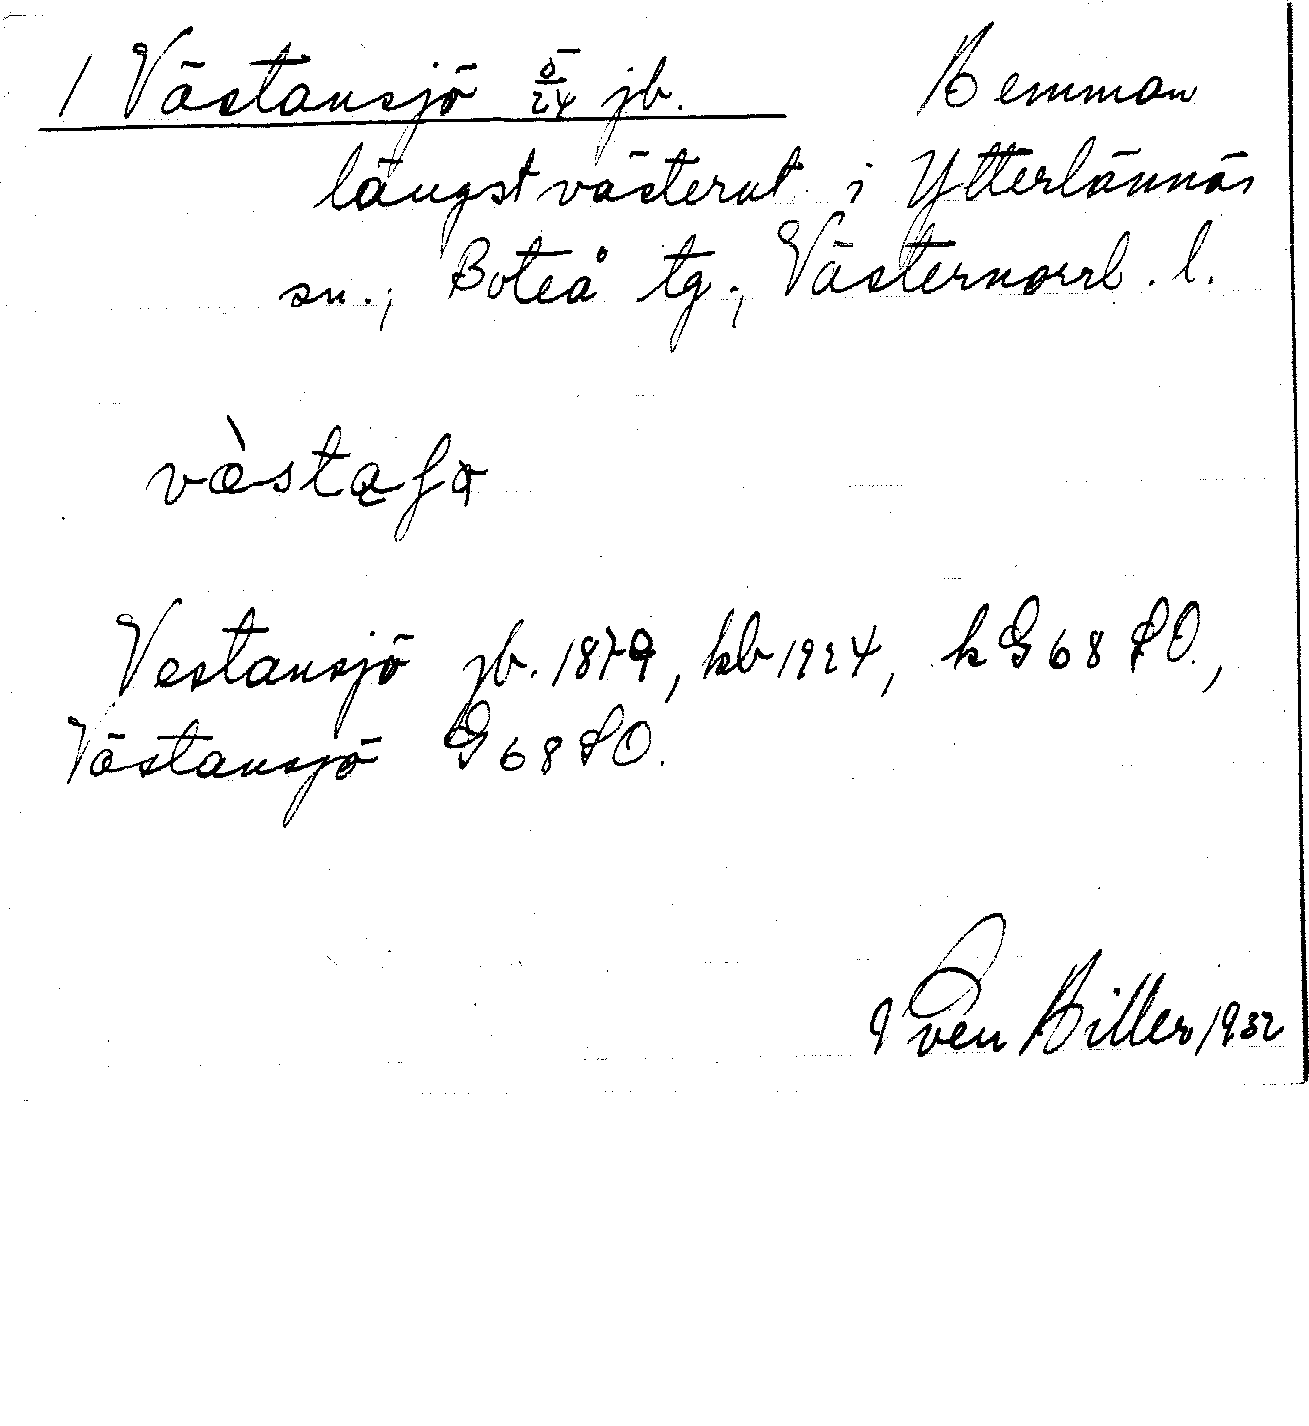 1 Västansjö 5/24 jb. Hemman
längst västerut i Ytterlännäs
sn., Boteå tg., Västernorrl. l.
Vestansjö jb. 1879, kb 1924, k G 68 SO.,
Västansjö G 68 SO.
Sven Hiller 1932